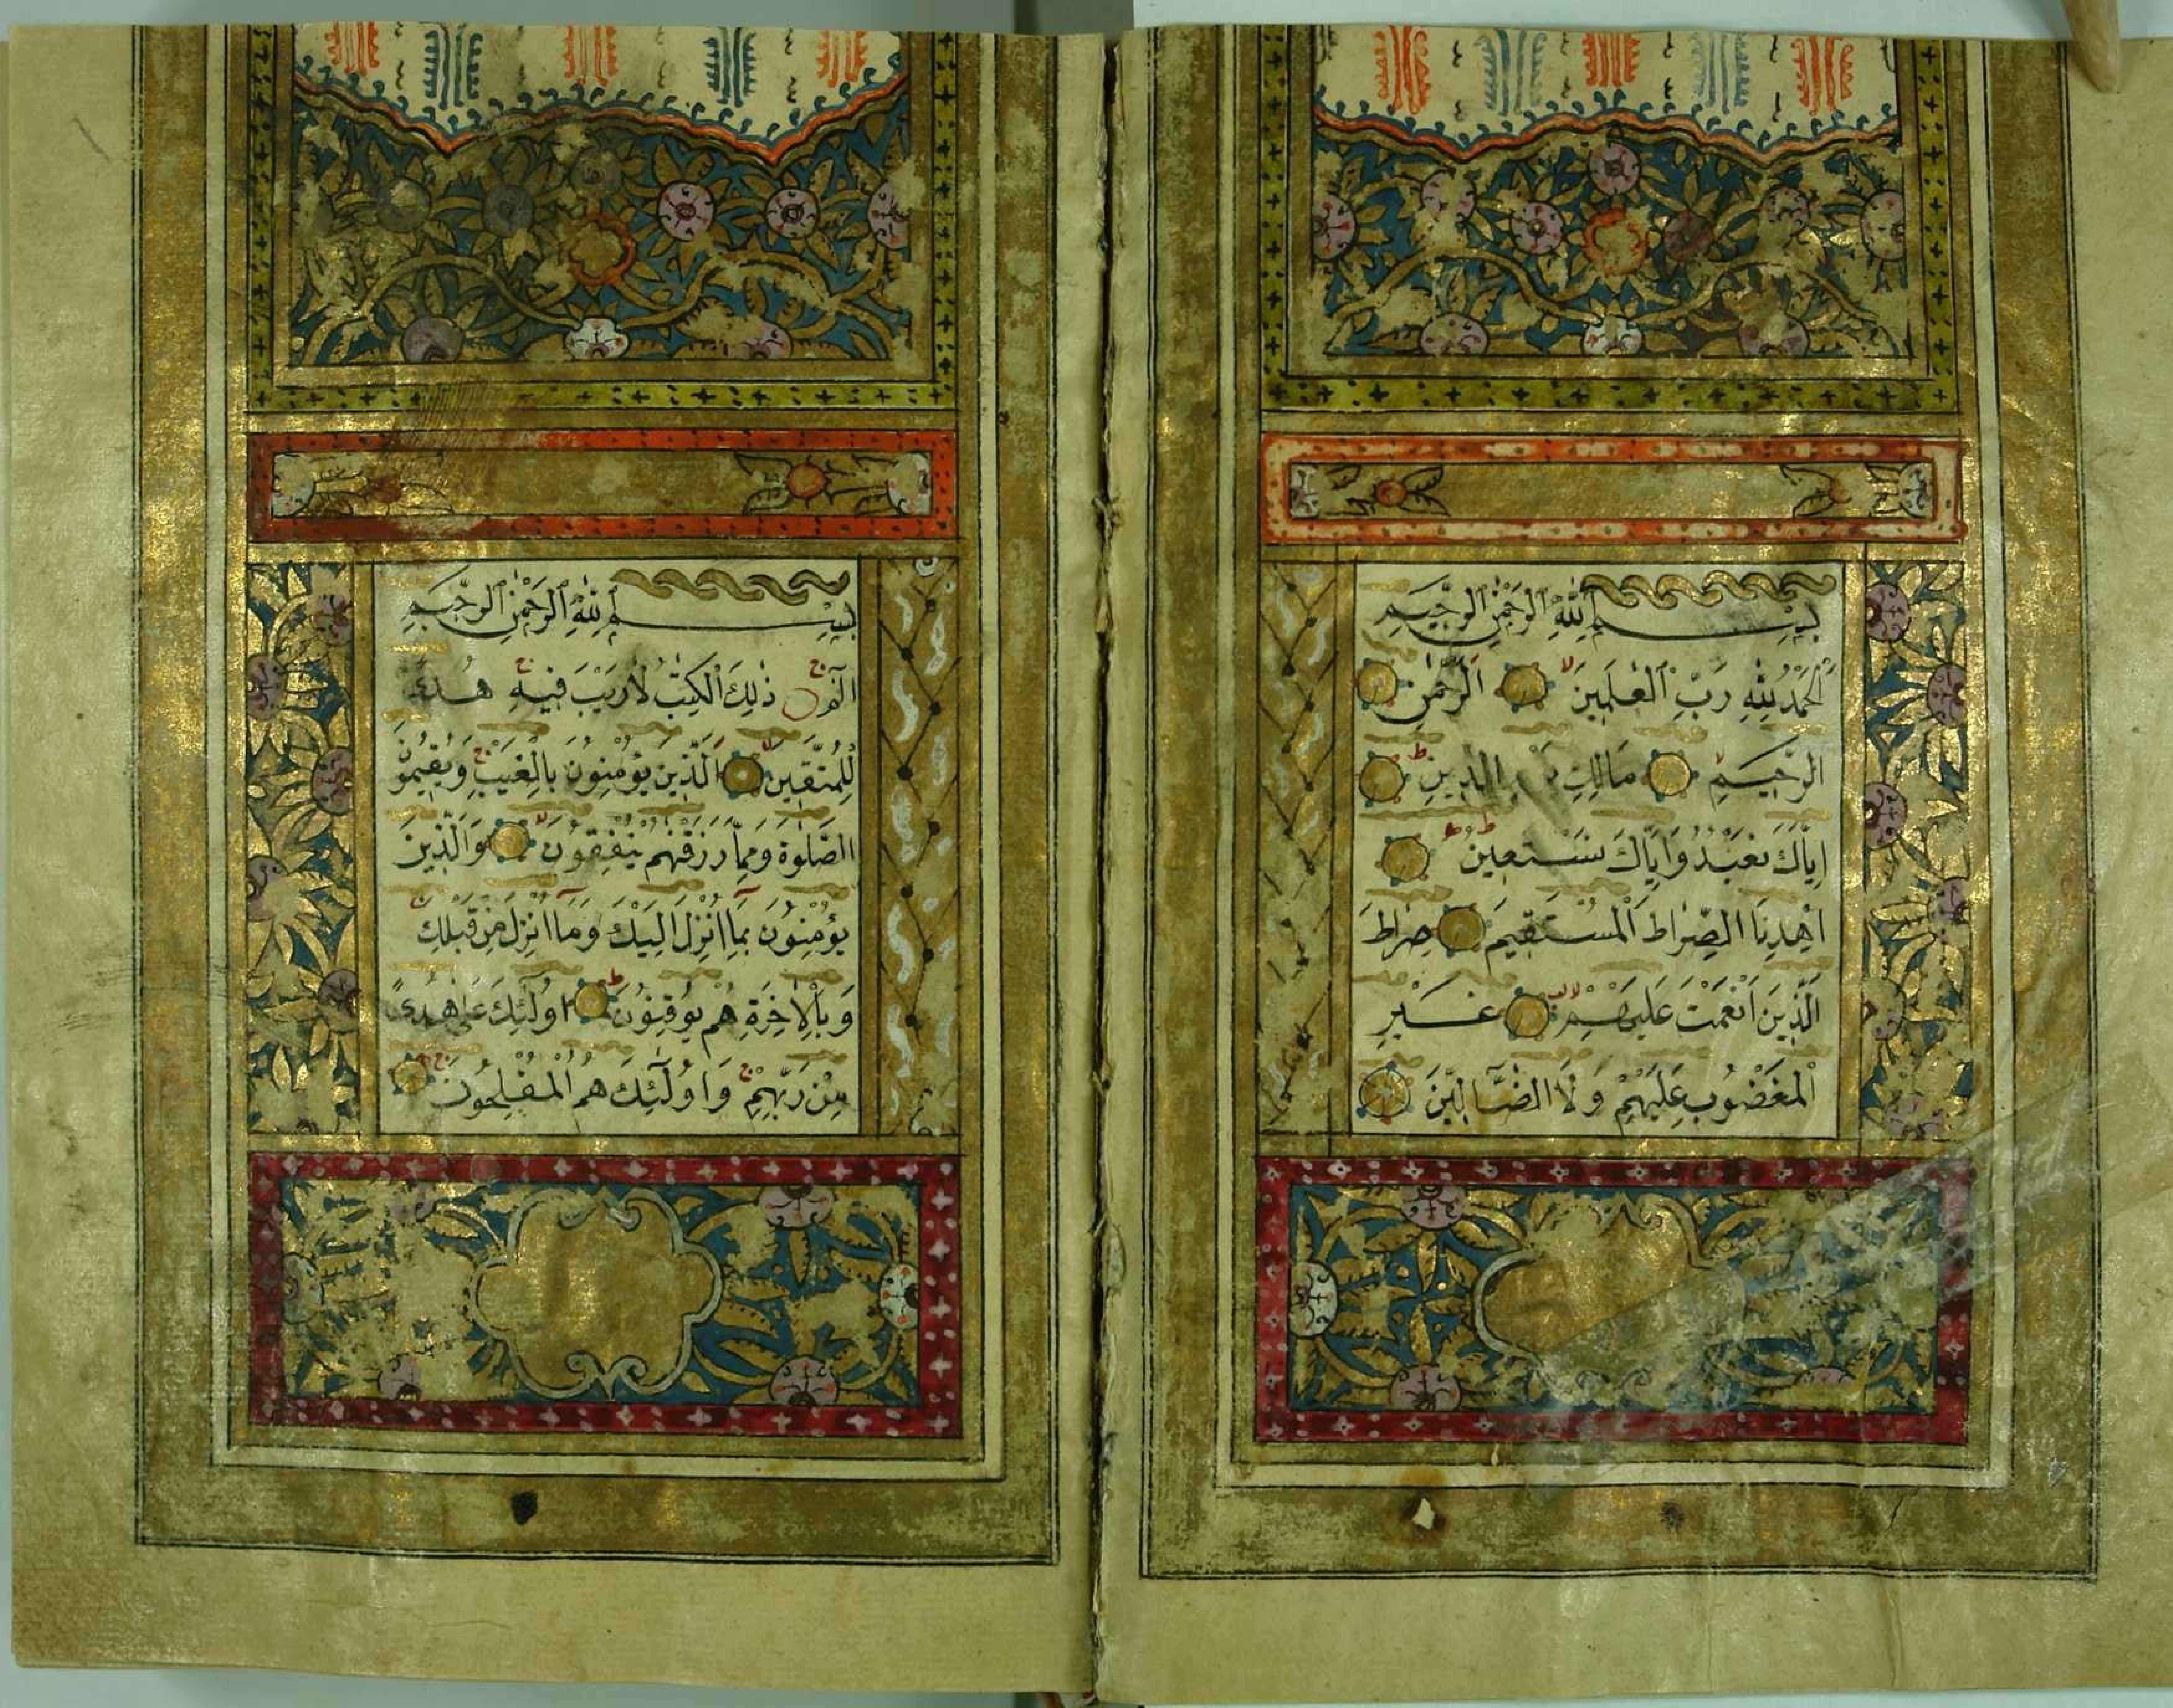 بِسْمِ ٱللّٰهِ ٱلرَّحْمٰنِ ٱلرَّحِيمِ
اَلْحَمْدُ لِلّٰهِ رَبِّ ٱلْعٰلَمِينَ لا اَلرَّحْمٰنِ
الرَّحِيمِ لا مَالِكِ الدِّينِ ط
اِيَّاكَ نَعْبُدُ وَاِيَّاكَ نَسْتَعِينُ ط
اِهْدِنَا الصِّرَاطَ الْمُسْتَقِيمَ صِرَاطَ
الَّذِينَ اَنْعَمْتَ عَلَيْهِمْ لا غَيْرِ
الْمَغْضُوبِ عَلَيْهِمْ وَلَا الضَّآلِّينَ
بِسْمِ ٱللّٰهِ ٱلرَّحْمٰنِ ٱلرَّحِيمِ
الٓمٓ ج ذٰلِكَ الْكِتٰبُ لَا رَيْبَ فِيهِ ج هُدًى
لِلْمُتَّقِينَ لا اَلَّذِينَ يُؤْمِنُونَ بِالْغَيْبِ وَيُقِيمُونَ
الصَّلٰوةَ وَمِمَّا رَزَقْنٰهُمْ يُنْفِقُونَ لا وَالَّذِينَ
يُؤْمِنُونَ بِمَآ اُنْزِلَ اِلَيْكَ وَمَآ اُنْزِلَ مِنْ قَبْلِكَ ج
وَبِالْاٰخِرَةِ هُمْ يُوقِنُونَ ط اُولٰٓئِكَ عَلٰى هُدًى
مِنْ رَبِّهِمْ ج وَاُولٰٓئِكَ هُمُ الْمُفْلِحُونَ